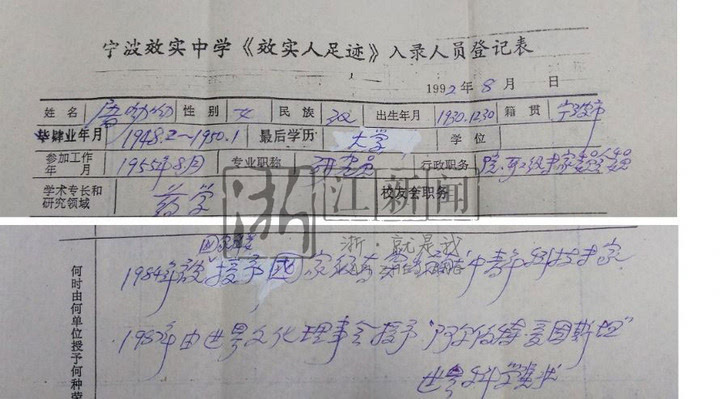 宁波效实中学《效实人足迹》入录人员登记表
1992年8月 日
姓名 屠呦呦 性别 女 民族 汉 出生年月 1930.12.30 籍贯 宁波市
毕肄业年月 1948.2~1950.1 最后学历 大学 学位
参加工作年月 1955年8月 专业职称 研究员 行政职务
学术专长和研究领域 药学 校友会职务
浙江新闻
浙·就是我
何时由何单位授予何种荣
1984年被授予国家级有突出贡献中青年科技专家
1987年由世界文化理事会授予"阿尔伯特·爱因斯坦"
世界科学奖状